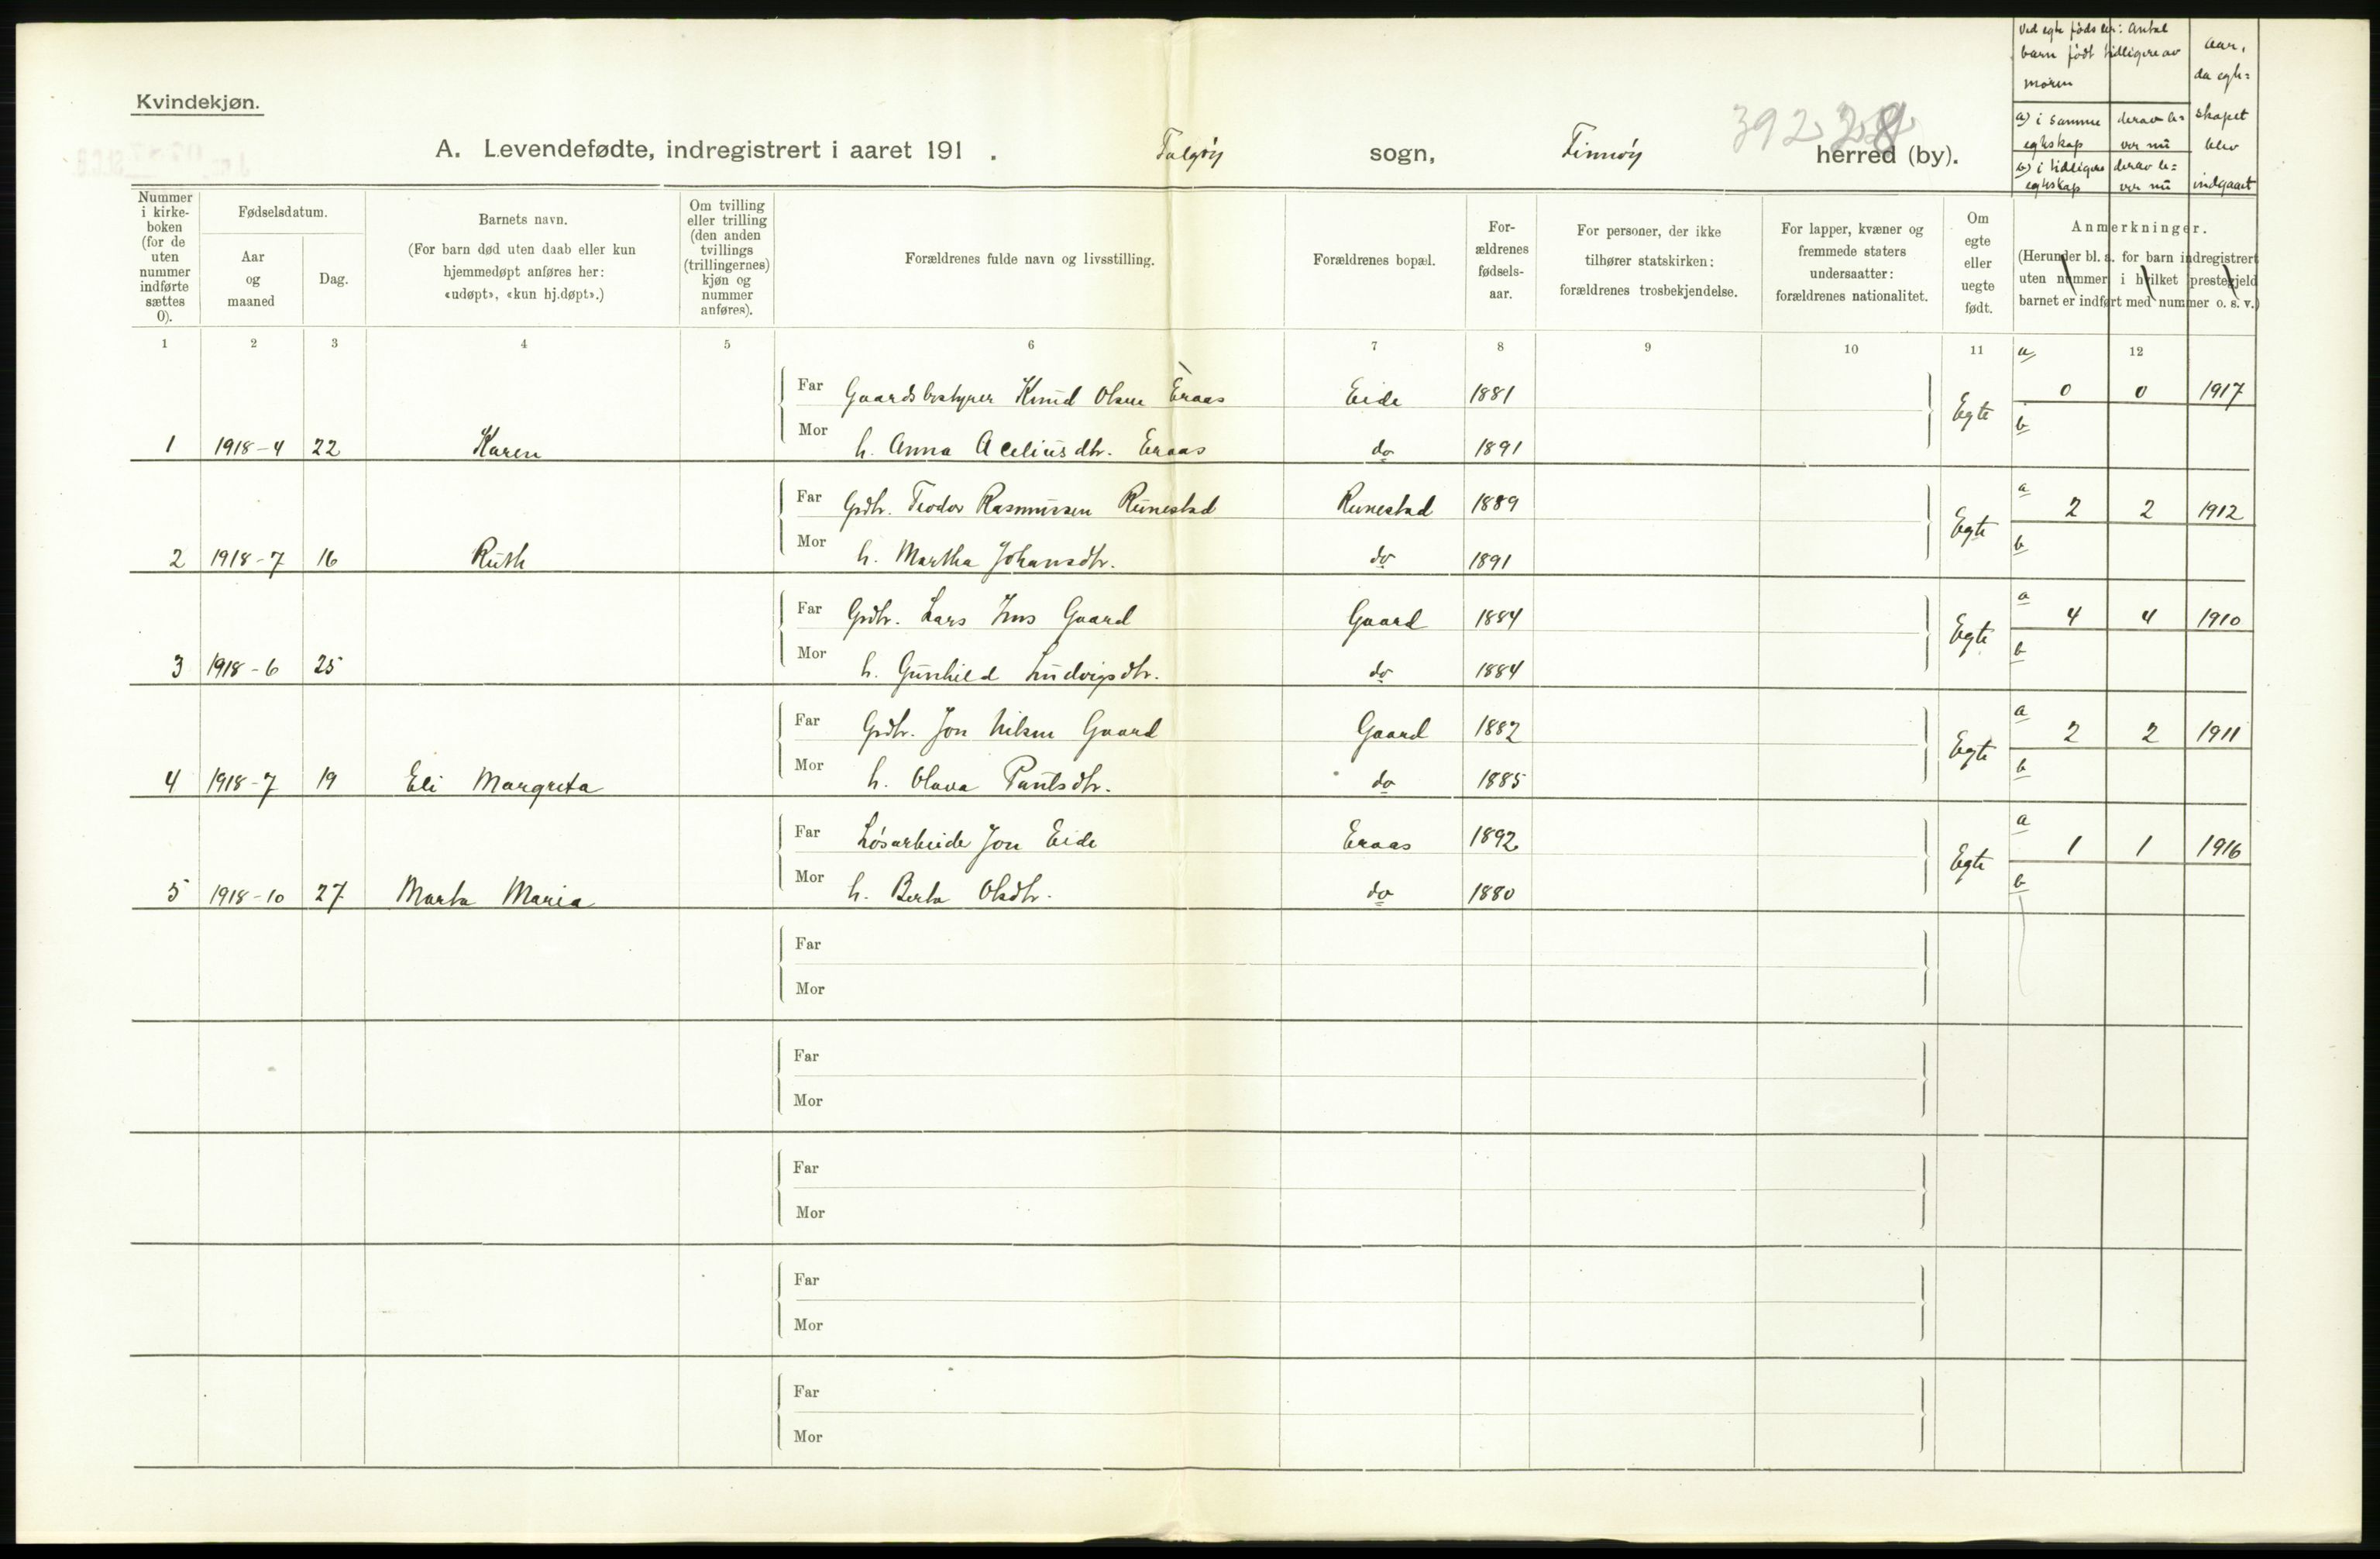 Kvindekjøn.
A. Levendefødte, indregistrert i aaret 191 . Talgøy sogn, Finnøy herred (by).
392 28
Ved egte fødsler: Antal
barn født tidligere av
moren
a) i samme egteskap
derav le-
ver nu
b) i tidligere
egteskap
derav le=
ver nu
Aar,
da egte=
skapet
blev
indgaaet
Nummer i kirke-boken (for de uten nummer indførte sættes 0).
Fødselsdatum.
Aar og maaned
Dag.
Barnets navn.
(For barn død uten daab eller kun hjemmedøpt anføres her: «udøpt», «kun hj.døpt».)
Om tvilling eller trilling (den anden tvillings (trillingernes) kjøn og nummer anføres).
Forældrenes fulde navn og livsstilling.
Forældrenes bopæl.
For-ældrenes fødsels-aar.
For personer, der ikke tilhører statskirken: forældrenes trosbekjendelse.
For lapper, kvæner og fremmede staters undersaatter: forældrenes nationalitet.
Om egte eller uegte født.
Anmerkninger.
(Herunder bl. a. for barn indregistrert uten nummer i hvilket prestegjeld barnet er indført med nummer o. s. v.)
1 2 3 4 5 6 7 8 9 10 11 12
Far Gaardsbestyrer Knud Olsen Eraas Eide 1881 Egte a 0 0 1917
1 1918-4 22 Karen Mor h. Anna Aceliusdtr. Eraas do 1891 b
Far Grdbr. Teodor Rasmussen Runestad Runestad 1889 Egte a 2 2 1912
2 1918-7 16 Ruth Mor h. Martha Johansdtr. do 1891 b
Far Grdbr. Lars Gaard Gaard 1884 Egte a 4 4 1910
3 1918-6 25 Mor h. Gunhild Ludvigsdtr. do 1884 b
Far Grdbr. Jon Nilsen Gaard Gaard 1882 Egte a 2 2 1911
4 1918-7 19 Eli Margreta Mor h. Olava Paulsdtr. do 1885 b
Far Løsarbeide Jon Eide Eraas 1892 Egte a 1 1 1916
5 1918-10 27 Marta Maria Mor h. Berta Olsdtr. do 1880 b
Far
Mor
Far
Mor
Far
Mor
Far
Mor
Far
Mor